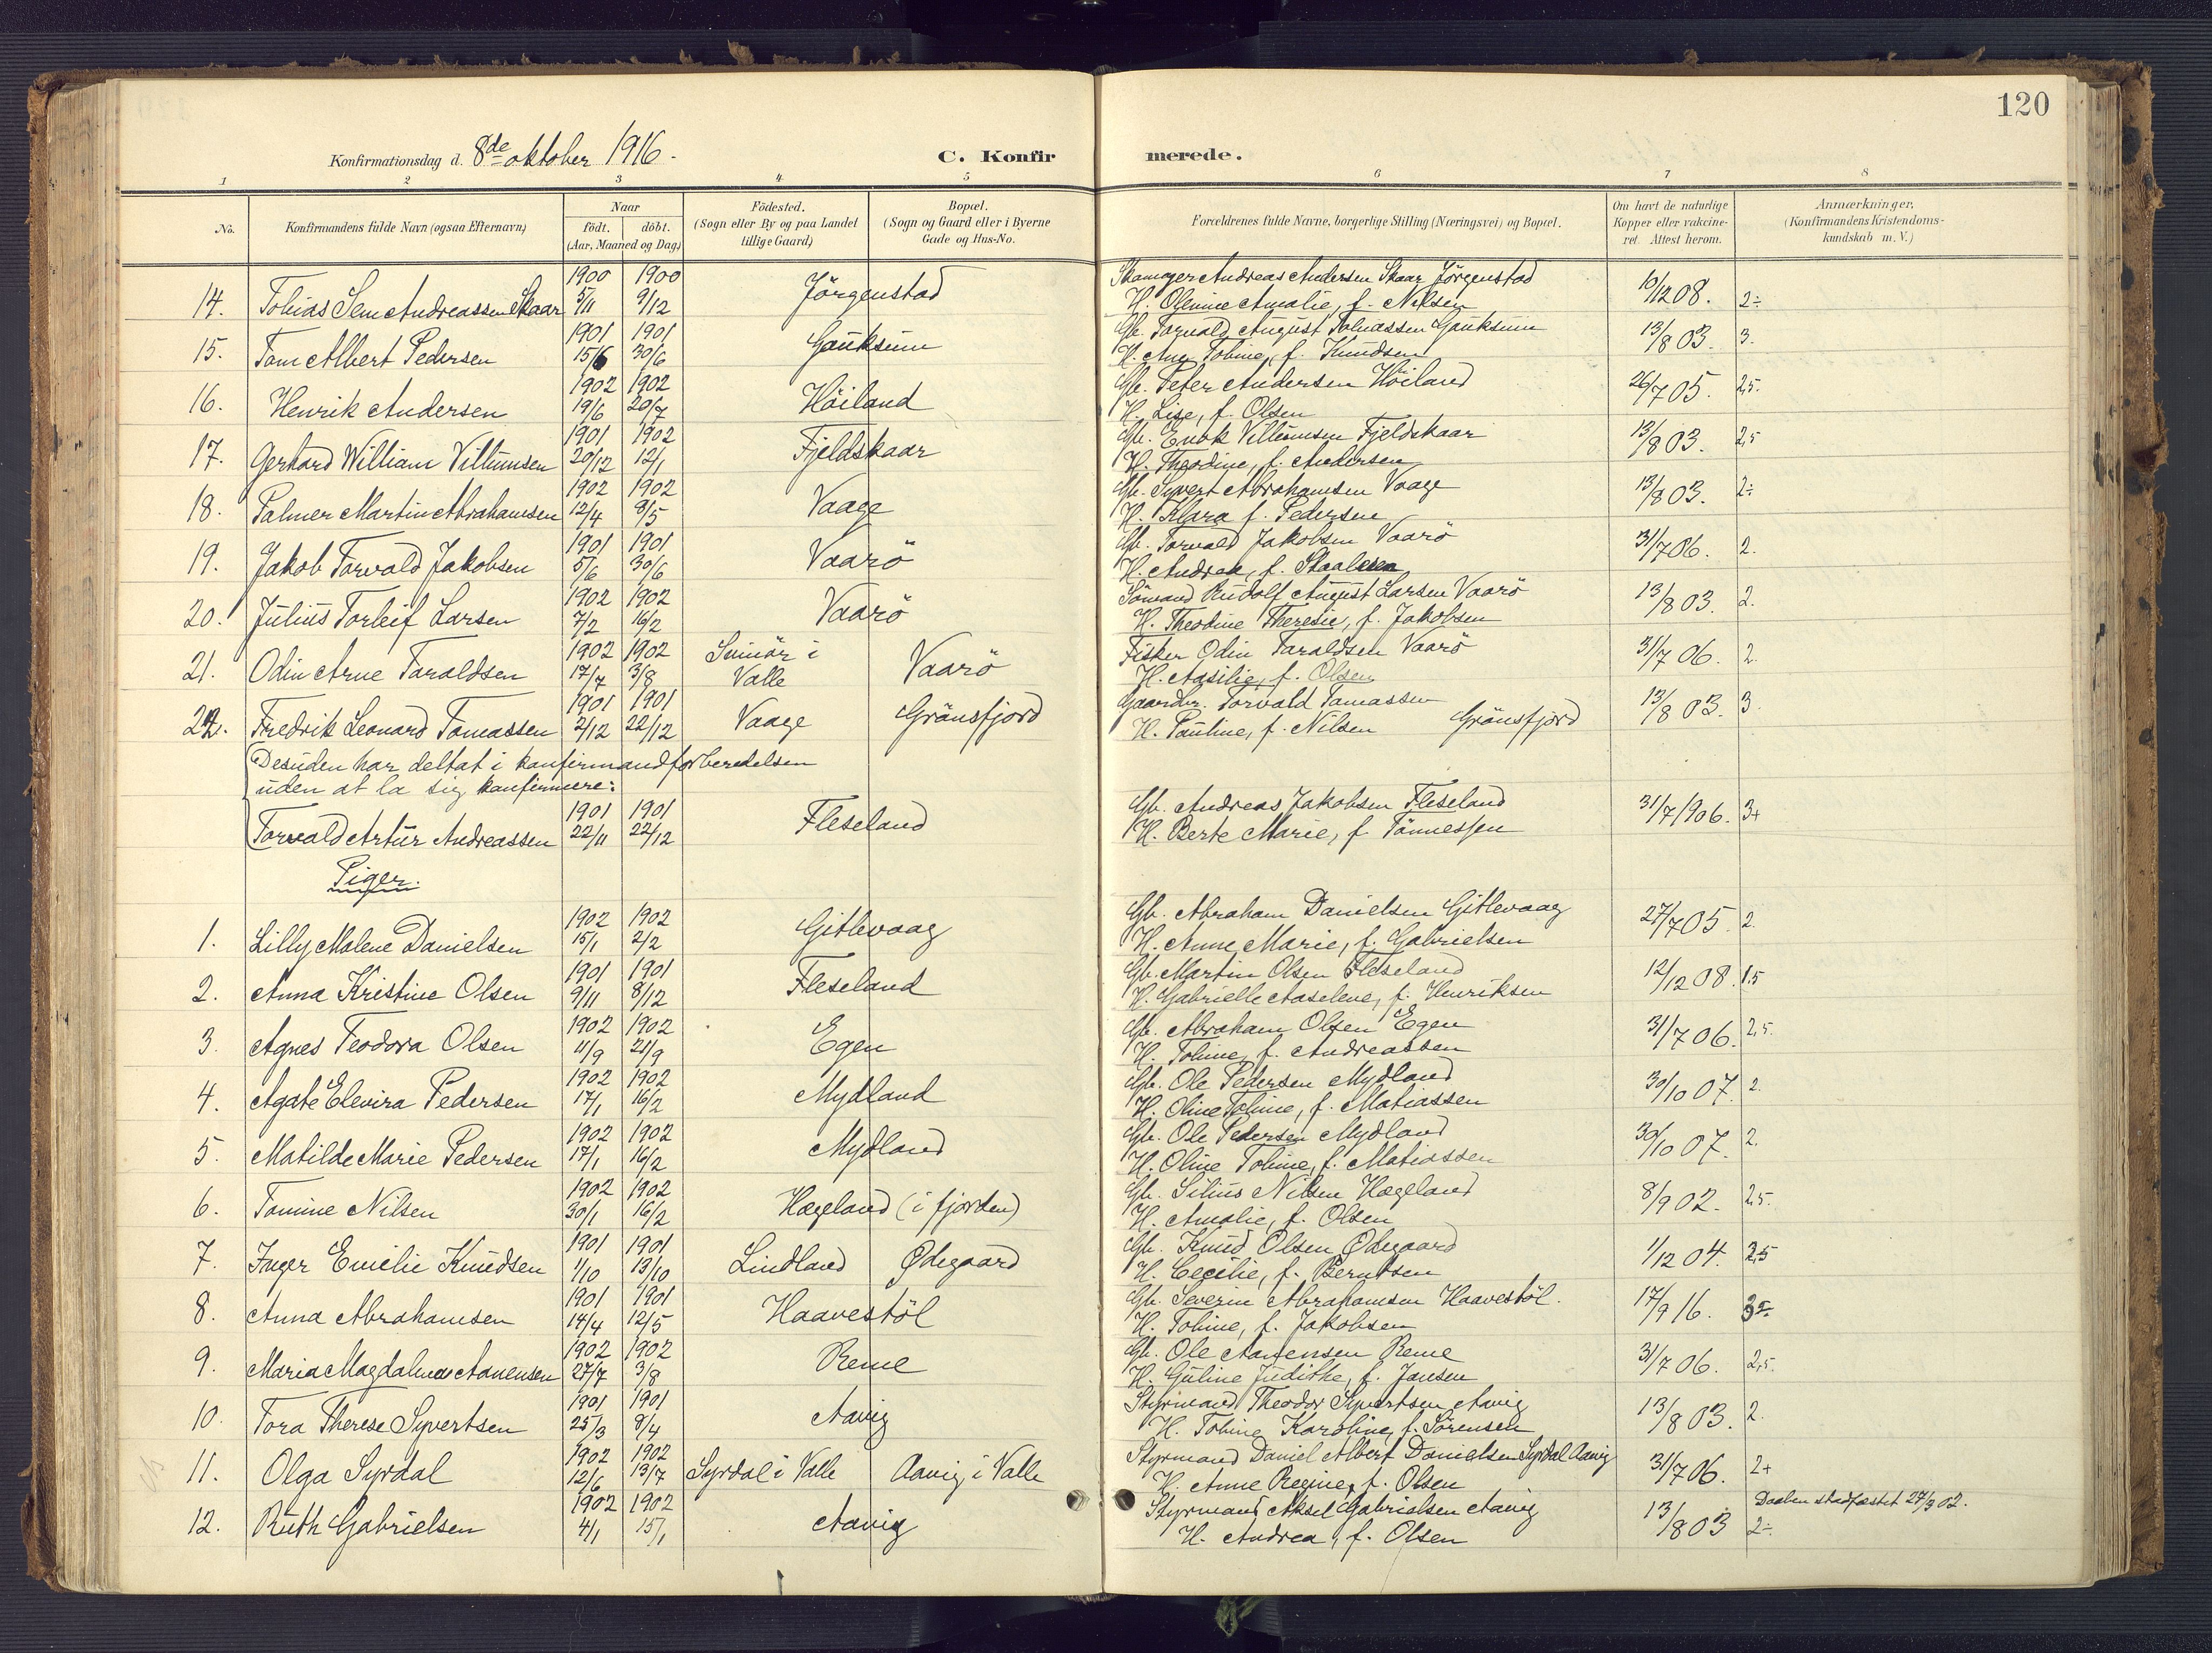 120
Konfirmationsdag d. 8de oktober 1916.
C. Konfirmerede.
1 2 3 4 5 6 7 8
No.
Konfirmandens fulde Navn (ogsaa Efternavn)
Naar
födt. döbt.
(Aar, Maaned og Dag)
Födested.
(Sogn eller By og paa Landet
tillige Gaard)
Bopæl.
(Sogn og Gaard eller i Byerne
Gade og Hus-No.
Forældrenes fulde Navne, borgerlige Stilling (Næringsvei) og Bopæl.
Om havt de naturlige
Kopper eller vakcine-
ret. Attest herom.
Anmærkninger,
(Konfirmandens Kristendoms-
kundskab m. V.)
1900 1900 Andreas Andersen Skaar Jörgenstad
14. Tobias Sem Andreassen Skaar 5/11 9/12 Jörgenstad H. Olenine Amalie, f. Nilsen 10/12 08. 2÷
1901 1901 Gb. Torvald August Tobiassen Gauksum
15. Tom Albert Pedersen 15/6 30/6 Gauksum H. Ane Tobine, f. Knudsen 13/8 03. 3.
1902 1902 Gb. Peter Andersen Höiland
16. Henrik Andersen 19/6 20/7 Höiland H. Lise, f. Olsen 26/7 05. 2,5.
1901 1902 Gb. Enok Villumsen Fjeldskaar
17. Gerhard William Villumsen 20/12 12/1 Fjeldskaar H. Theodine, f. Andersen 13/8 03. 2,5
1902 1902 Gb. Syvert Abrahamsen Vaage
18. Palmer Martin Abrahamsen 12/4 8/5 Vaage H. Klara f. Pedersen 13/8 03. 2÷
1901 1901 Gb. Torvald Jakobsen Vaarö
19. Jakob Torvald Jakobsen 5/6 30/6 Vaarö H. Andrea, f. 31/7 06. 2.
1902 1902 Sömand Rudolf August Larsen Vaarö
20. Julius Torleif Larsen 7/2 16/2 Vaarö H. Theodine Theresie, f. Jakobsen 13/8 03. 2.
1902 1902 Fisker Odin Taraldsen Vaarö
21. Odin Arne Taraldsen 17/7 3/8 i Valle Vaarö H. Aasilie, f. Olsen 31/7 06. 2.
1901 1901 Gaardbr. Torvald Tomassen
22. Fredrik Leonard Tomassen 2/12 22/12 Vaage Grönsfjord H. Pauline, f. Nilsen Grönsfjord 13/8 03. 3.
Desuden har deltat i konfirmandforberedelsen
uden at la sig konfirmere:
1901 1901 Gb. Andreas Jakobsen Fleseland
Torvald Artur Andreassen 22/11 22/12 Fleseland H. Berte Marie, f. Tönnessen 31/7 1906. 3+
Piger.
1902 1902 Gb. Abraham Danielsen Gitlevaag
1. Lilly Malene Danielsen 15/1 2/2 Gitlevaag H. Anne Marie, f. Gabrielsen 27/7 05. 2.
1901 1901 Gb. Martin Olsen Fleseland
2. Anna Kristine Olsen 9/11 8/12 Fleseland H. Gabrielle Aaselene, f. Henriksen 12/12 08. 1.5
1902 1902 Gb. Abraham Olsen Egen
3. Agnes Teodora Olsen 11/9 21/9 Egen H. Tobine, f. Andreassen 31/7 06. 2,5.
1902 1902 Gb. Ole Pedersen Mydland
4. Agate Elevira Pedersen 17/1 16/2 Mydland H. Oline Tobine, f. Matiassen 30/10 07. 2.
1902 1902 Gb. Ole Pedersen Mydland
5. Matilde Marie Pedersen 17/1 16/2 Mydland H. Oline Tobine, f. Matiassen 30/10 07. 2.
1902 1902 Gb. Silius Nilsen Hægeland
6. Tomine Nilsen 30/1 16/2 Hægeland (i fjorden) H. Amalie, f. Olsen 8/9 02. 2,5.
1901 1901 Gb. Knud Olsen Ødegaard
7. Inger Emilie Knudsen 1/10 13/10 Lindland Ødegaard H. Cecilie, f. Berntsen 1/12 04. 2,5
1901 1901 Gb. Severin Abrahamsen Haavestöl.
8. Anna Abrahamsen 14/4 12/5 Haavestöl H. Tobine, f. Jakobsen 17/9 16. 3÷
1902 1902 Gb. Ole Aanensen Reme
9. Maria Magdalena Aanensen 27/7 3/8 Reme H. Guline Judithe, f. Jansen 31/7 06. 2,5.
1901 1901 Styrmand Theodor Syvertsen Aavig
10. Tora Therese Syvertsen 25/3 8/4 Aavig H. Tobine Karoline, f. Sörensen 13/8 03. 2.
1902 1902 Styrmand Daniel Albert Danielsen Syrdal Aavig
11. Olga Syrdal 12/6 13/7 Syrdal i Valle Aavig i Valle H. Anne Regine, f. Olsen 31/7 06. 2+
1902 1902 Styrmand Aksel Gabrielsen Aavig Daaben stadfæstet 27/3 02.
12. Ruth Gabrielsen 4/1 15/1 Aavig H. Andrea, f. Olsen 13/8 03 2÷